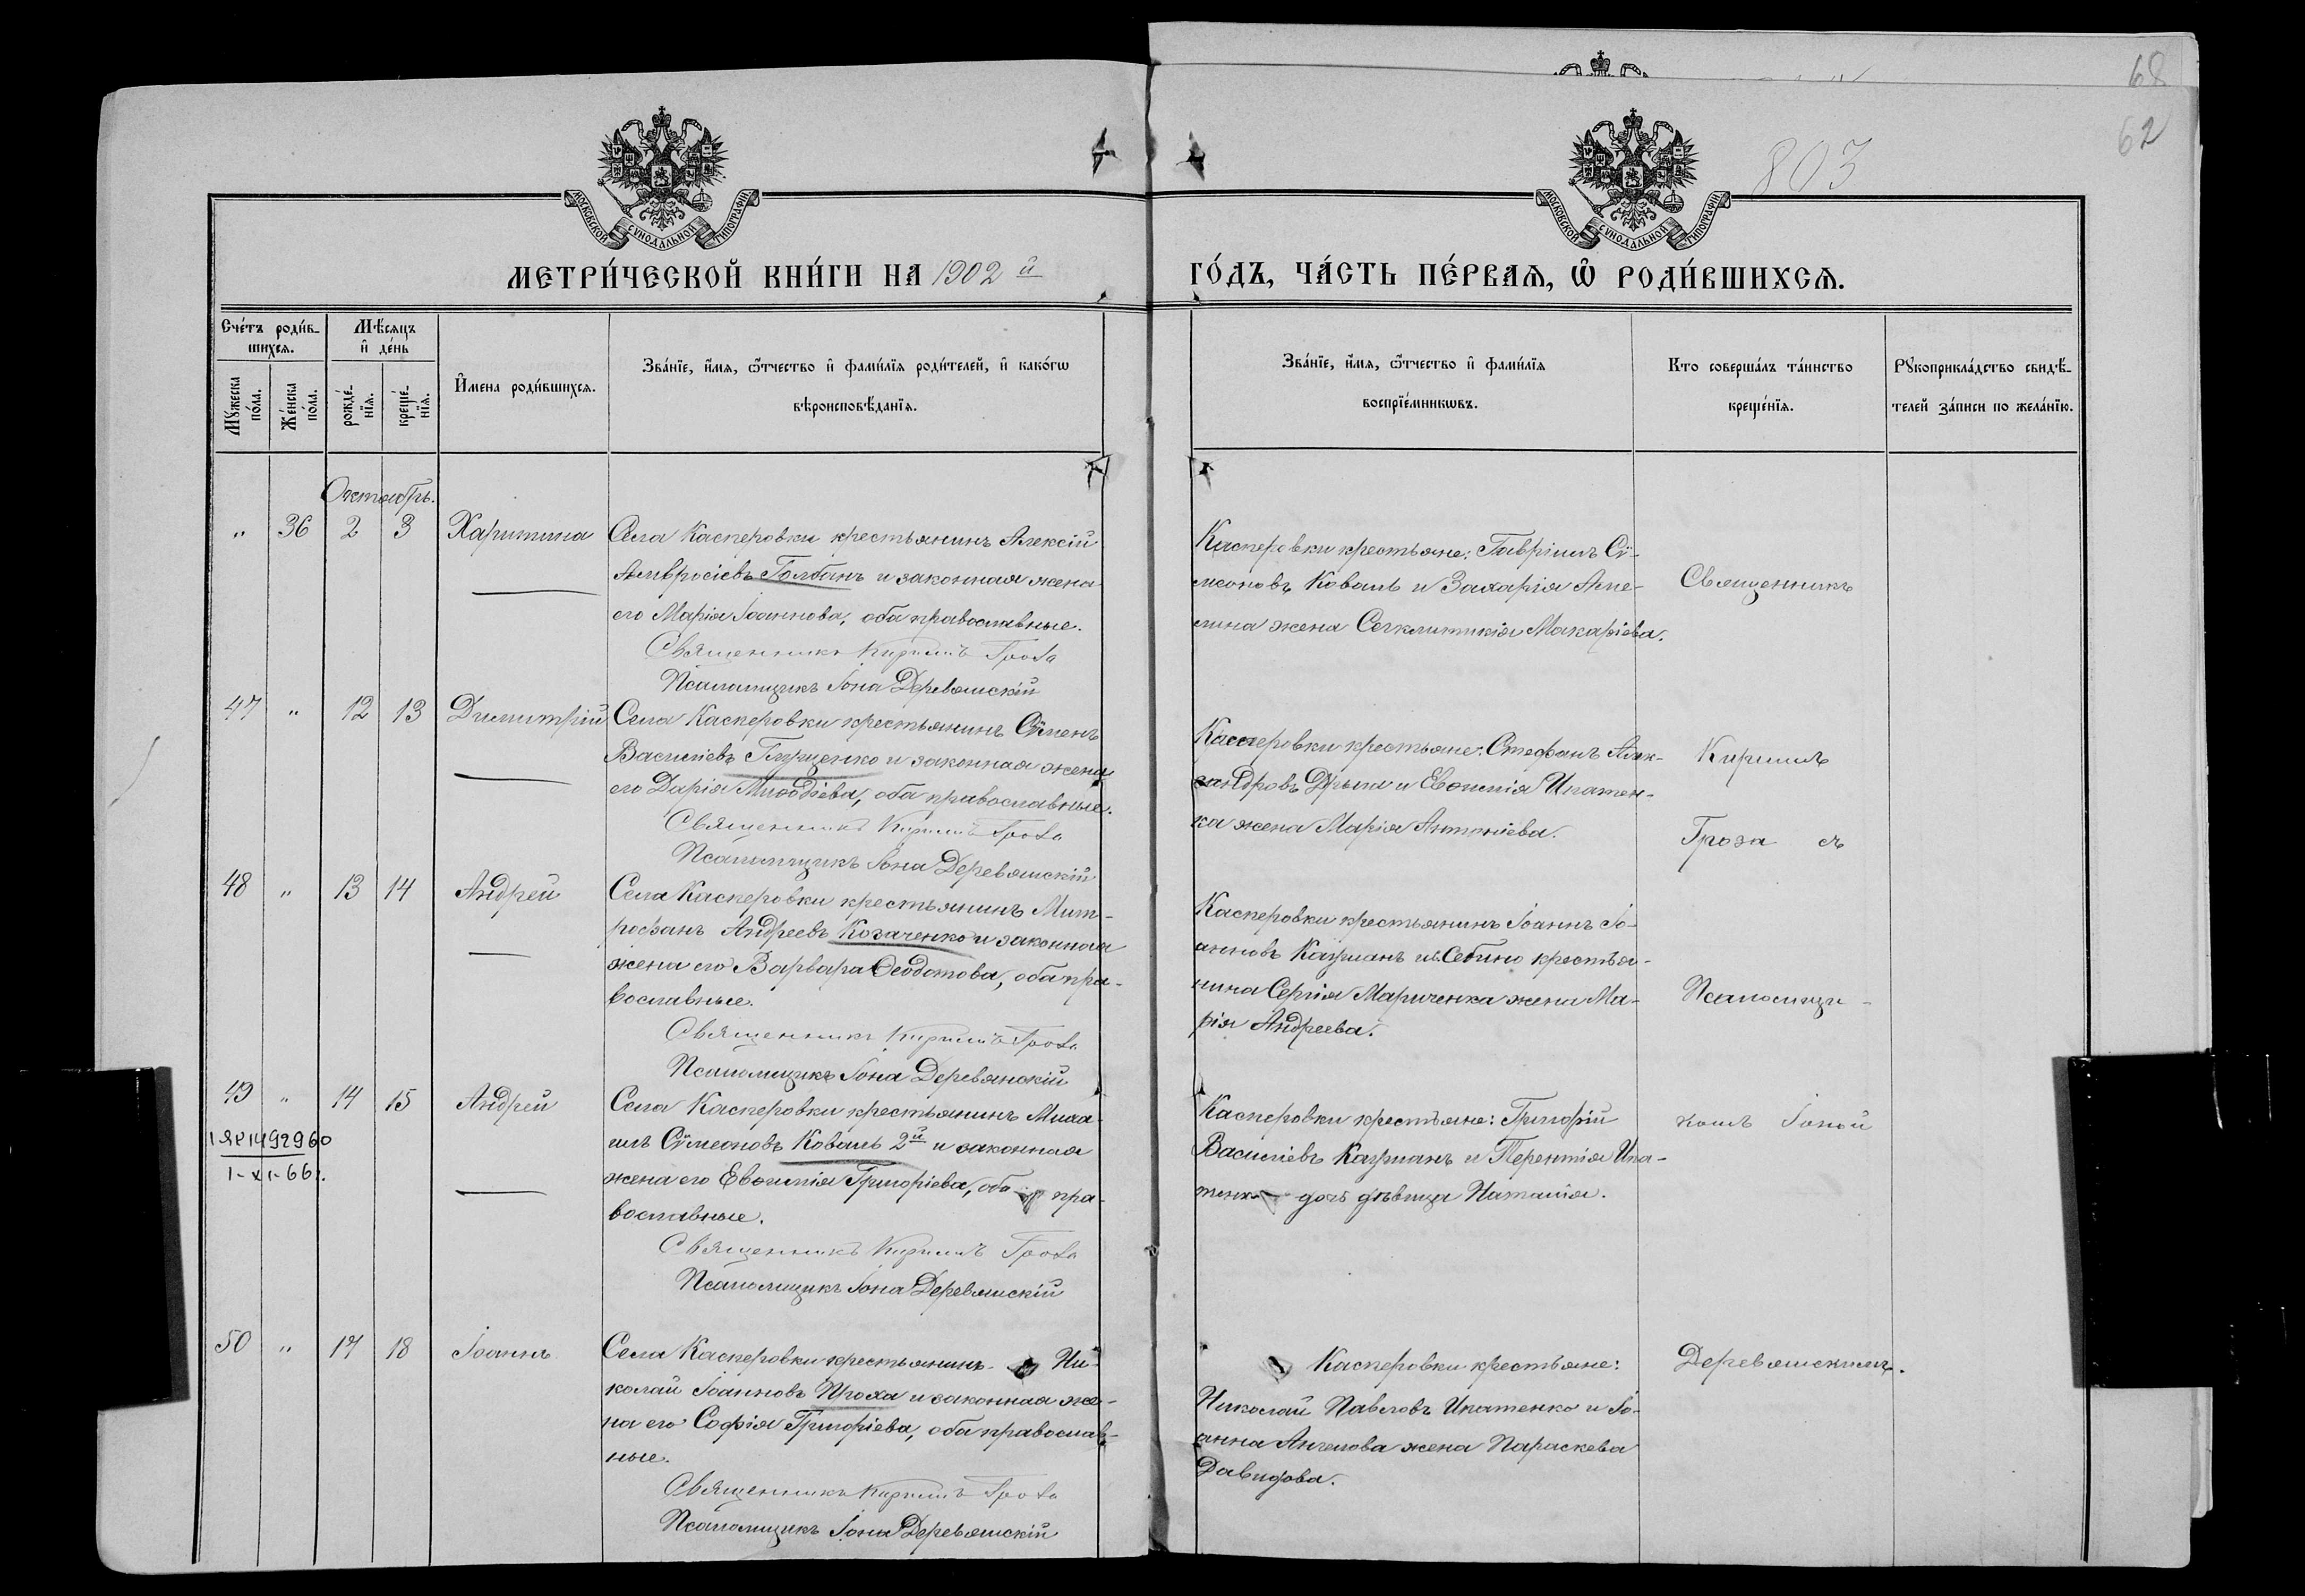 68
62
803
МОСКОВСКОЙ СѴНОДАЛЬНОЙ ТИПОГРАФІИ.
МОСКОВСКОЙ СѴНОДАЛЬНОЙ ТИПОГРАФІИ.
МЕТРИ́ЧЕСКОЙ КНИ́ГИ НА 1902 й
ГО́ДЪ, ЧА́СТЬ ПЕ́РВАЯ, Ѡ РОДИ́ВШИХСЯ.
Сче́тъ роди́в-
шихся.
Мѣсяцъ
и де́нь
Мꙋжеска по́ла.
Же́нска по́ла.
рожде́-нїя.
креще́-нїя.
И́мена роди́вшихся.
Зва́нїе, и́мя, ѻ́тчество и фами́лїя роди́телей, и како́гѡ
вѣроисповѣ́данїя.
Зва́нїе, и́мя, ѻ́тчество и фами́лїя
воспрїе́мникѡвъ.
Кто соверша́лъ та́инство
креще́нїя.
Рꙋкоприкла́дство свидѣ́-
телей за́писи по жела́нїю.
Октябрь.
" 36 2 3 Харитина
Села Касперовки крестьянинъ Алексій
Амвросіевъ Голбанъ и законная жена
его Марія Іоаннова, оба православные.
Священникъ Кириллъ Гроза
Псаломщикъ Іона Деревянскій
Касперовки крестьяне: Гавріилъ Сѵ-
меоновъ Коваль и Захарія Анге-
лина жена Сѵнклитикія Макаріева.
Священникъ
47 " 12 13 Димитрій
Села Касперовки крестьянинъ Сѵменъ
Василіевъ Грищенко и законная жена
его Дарія Меѳодіева, оба православные.
Священникъ Кириллъ Гроза
Псаломщикъ Іона Деревянскій
Касперовки крестьяне: Стефанъ Алек-
сандровъ и Евѳимія Ипатен-
ка жена Марія Антоніева.
Кириллъ
Гроза съ
48 " 13 14 Андрей
Села Касперовки крестьянинъ Мит-
рофанъ Андреевъ Козаченко и законная
жена его Варвара Ѳеодотова, оба пра-
вославные.
Священникъ Кириллъ Гроза
Псаломщикъ Іона Деревянскій
Касперовки крестьянинъ Іоаннъ Іо-
анновъ Кацманъ и с. Себино крестья-
нина Сергія Мариченка жена Ма-
рія Андреева.
Псаломщи-
49 " 14 15 Андрей
1 ЯР 1492960
1-XI-66г.
Села Касперовки крестьянинъ Миха-
илъ Сѵмеоновъ Коваль 2й и законная
жена его Евѳимія Григоріева, оба пра-
вославные.
Священникъ Кириллъ Гроза
Псаломщикъ Іона Деревянскій
Касперовки крестьяне: Григорій
Василіевъ Кацманъ и Терентія Ипа-
тенк дочь дѣвица Наталія.
комъ Іоной
50 " 17 18 Іоаннъ
Села Касперовки крестьянинъ Ни-
колай Іоанновъ Проха и законная же-
на его Софія Григоріева, оба православ-
ные.
Священникъ Кириллъ Гроза
Псаломщикъ Іона Деревянскій
Касперовки крестьяне:
Николай Павловъ Ипатенко и Іо-
анна Ангелова жена Параскева
Давидова.
Деревянскимъ.